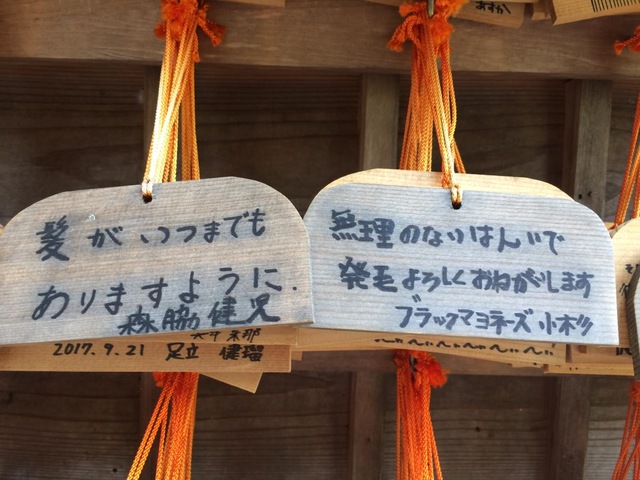 髪がいつまでも
ありますように.
森脇健児
無理のないはんいで
発毛よろしくおねがいします
ブラックマヨネーズ小杉
2017.9.21 足立 健瑠